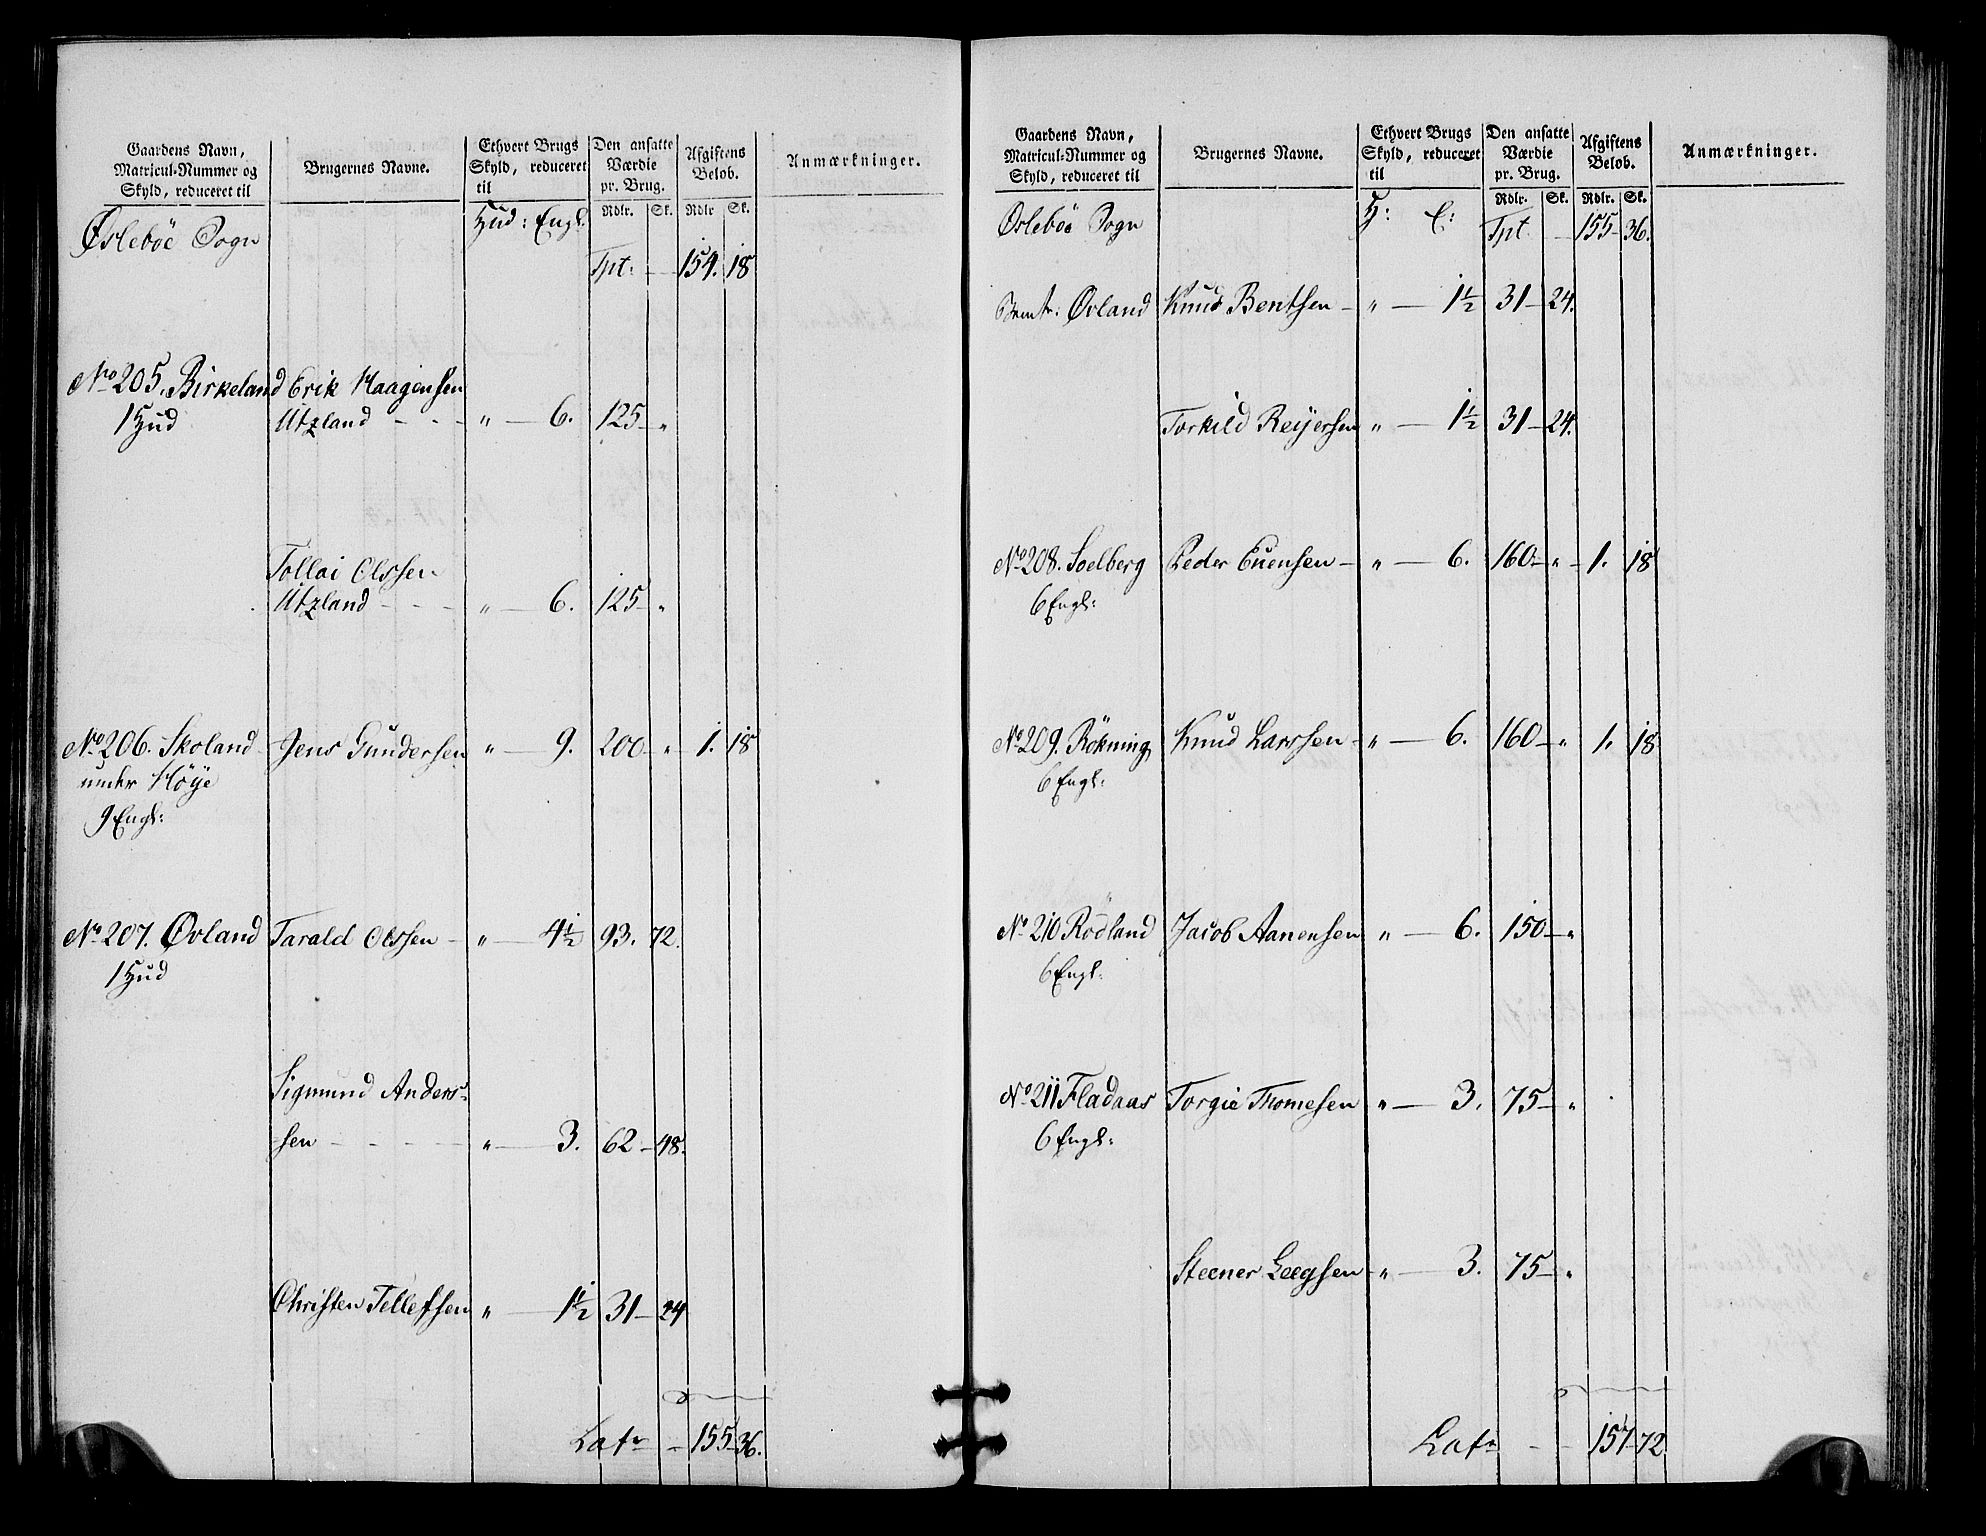 Gaardens Navn,
Matricul-Nummer og
Skyld, reduceret til
Brugernes Navne.
Ethvert Brugs
Skyld, reduceret
til
Den ansatte
Værdie
pr. Brug.
Afgiftens
Beløb.
Anmærkninger.
Rdlr. Sk. Rdlr Sk.
Øslebøe Sogn Hud: Engl.
Tpt: — 154. 18
No 205. Birkeland Erik Haagensen
1 Hud Utzland - - - „ — 6. 125 — „
Tollai Olssen
Utzland - - - „ — 6. 125 — „
No 206. Skoland Jens Gundersen „ — 9. 200 — „ 1. 18
under Höye
9 Engl:
No 207. Øvland Tarald Olssen — „ — 4½ 93. 72.
1 Hud
Sigmund Anders-
sen - - - - „ — 3. 62 — 48.
Christen Tellefsen „ — 1½ 31 — 24
Lats — 155 36.
Gaardens Navn,
Matricul-Nummer og
Skyld, reduceret til
Brugernes Navne.
Ethvert Brugs
Skyld, reduceret
til
Den ansatte
Værdie
pr. Brug.
Afgiftens
Beløb.
Anmærkninger.
Rdlr. Sk. Rdlr. Sk.
Øslebøe Sogn H: E: Tpt. — 155 — 36.
Øvland Knud Bentsen — „ — 1½ 31 — 24.
Torkild Reijersen „ — 1½ 31 — 24.
No 208. Soelberg Peder Evensen — „ — 6. 160 — „ — 1. 18
6 Engl:
No 209. Rökning Knud Larssen — „ — 6. 160 — „ 1. 18
6 Engl:
No 210 Rödland Jacob Aanensen „ — 6. 150 — „
6 Engl:
No 211 Fladaas Torgie Thomesen „ — 3. 75 — „
6 Engl:
Steener Leegsen — „ — 3. 75 — „
Lats - - 157 — 72